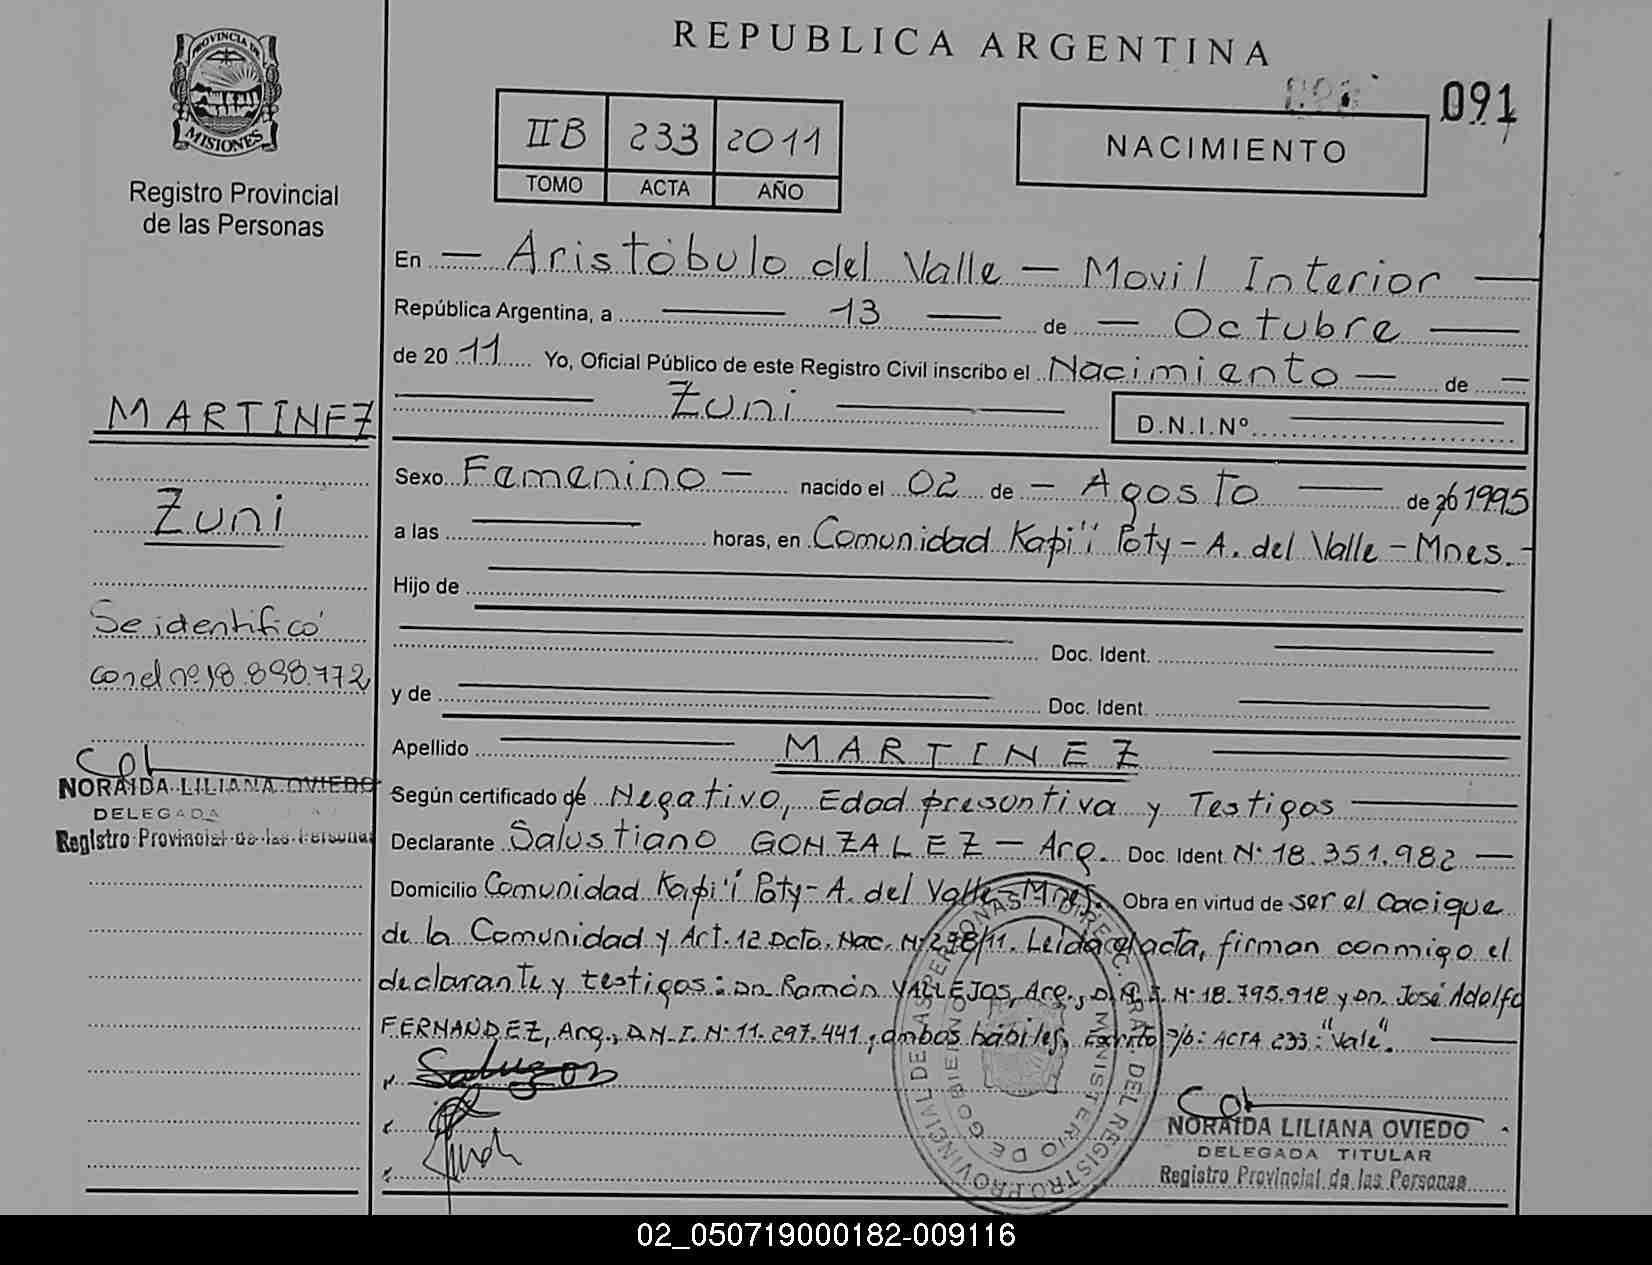 PROVINCIA DE MISIONES
Registro Provincial
de las Personas
REPUBLICA ARGENTINA
091
IIB 233 2011
TOMO ACTA AÑO
NACIMIENTO
En — Aristóbulo del Valle — Movil Interior —
República Argentina, a — 13 — de — Octubre —
de 20 11 Yo, Oficial Público de este Registro Civil inscribo el Nacimiento — de —
— Zuni — D.N.I.Nº —
MARTINEZ
Zuni
Se identificó
con el nº 18.898.772
NORAIDA LILIANA OVIEDO
DELEGADA
Registro Provincial de las Personas
Sexo Femenino — nacido el 02 de — Agosto — de 1995
a las — horas, en Comunidad Kapi'i Poty – A. del Valle – Mnes. –
Hijo de —
— Doc. Ident. —
y de — Doc. Ident. —
Apellido — MARTINEZ —
Según certificado de Negativo, Edad presuntiva y Testigos —
Declarante Salustiano GONZALEZ — Arg. Doc. Ident. Nº 18.351.982 —
Domicilio Comunidad Kapi'i Poty – A. del Valle – Mnes. Obra en virtud de ser el cacique
de la Comunidad y Art. 12 Dcto. Nac. Nº 278/11. Leida el acta, firman conmigo el
declarante y testigos: Dn. Ramón VALLEJOS, Arg., D.N.I. Nº 18.795.918 y Dn. José Adolfo
FERNANDEZ, Arg., D.N.I. Nº 11.297.441, ambos hábiles, Escrito s/b: ACTA 233: "Vale". —
REGISTRO PROVINCIAL DE LAS PERSONAS
MINISTERIO DE GOBIERNO
NORAIDA LILIANA OVIEDO
DELEGADA TITULAR
Registro Provincial de las Personas
02_050719000182-009116